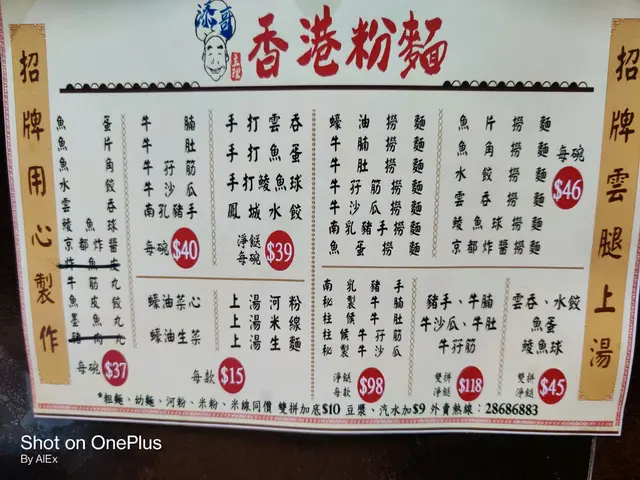 添哥
主理
香港粉麵
招牌用心製作
招牌雲腿上湯
魚蛋
魚片
魚角
水餃
雲吞
鯪魚球
京都炸醬
炸魚皮
牛筋丸
魚皮
墨魚丸
豬肉丸
每碗 $37
牛腩
牛肚
牛孖筋
牛沙瓜
南乳豬手
每碗 $40
手打雲吞
手打魚蛋
手打鯪魚球
鳳城水餃
淨餸
每碗 $39
蠔油菜心
蠔油生菜
上湯河粉
上湯米線
上湯生麵
每款 $15
蠔油撈麵
牛腩撈麵
牛肚撈麵
牛孖筋撈麵
牛沙瓜撈麵
南乳豬手撈麵
魚蛋撈麵
魚片撈麵
魚角撈麵
水餃撈麵
雲吞撈麵
鯪魚球撈麵
京都炸醬撈麵
每碗
$46
南乳豬手
秘製牛腩
柱候牛肚
柱候牛筋
秘製牛沙瓜
淨餸
每款 $98
豬手、牛腩
牛沙瓜、牛肚
牛孖筋
雙拼
淨餸 $118
雲吞、水餃
魚蛋
鯪魚球
雙拼
淨餸 $45
*粗麵、幼麵、河粉、米粉、米線同價 雙拼加底$10 豆漿、汽水加$9 外賣熱線:28686883
Shot on OnePlus
By AlEx